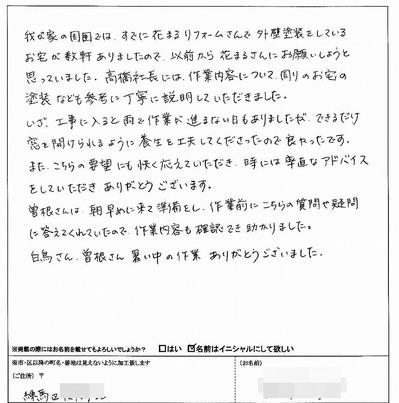 我が家の周囲では、すでに花まるリフォームさんで外壁塗装をしている
お宅が数軒ありましたので、以前から花まるさんにお願いしようと
思っていました。高橋社長には、作業内容について、周りのお宅の
塗装なども参考に丁寧に説明していただきました。
いざ、工事に入ると雨で作業が進まない日もありましたが、できるだけ
窓を開けられるように養生を工夫してくださったので良かったです。
また、こちらの要望にも快く応えていただき、時には率直なアドバイス
をしていただきありがとうございます。
曽根さんは朝早めに来て準備をし、作業前にこちらの質問や疑問
に答えてくれていたので、作業内容も確認でき助かりました。
白鳥さん、曽根さん暑い中の作業ありがとうございました。
※掲載の際にはお名前を載せてもよろしいでしょうか？ □はい ☑名前はイニシャルにして欲しい
※市・区以降の町名・番地は見えないように加工致します
（ご住所） 〒 （お名前）
練馬区